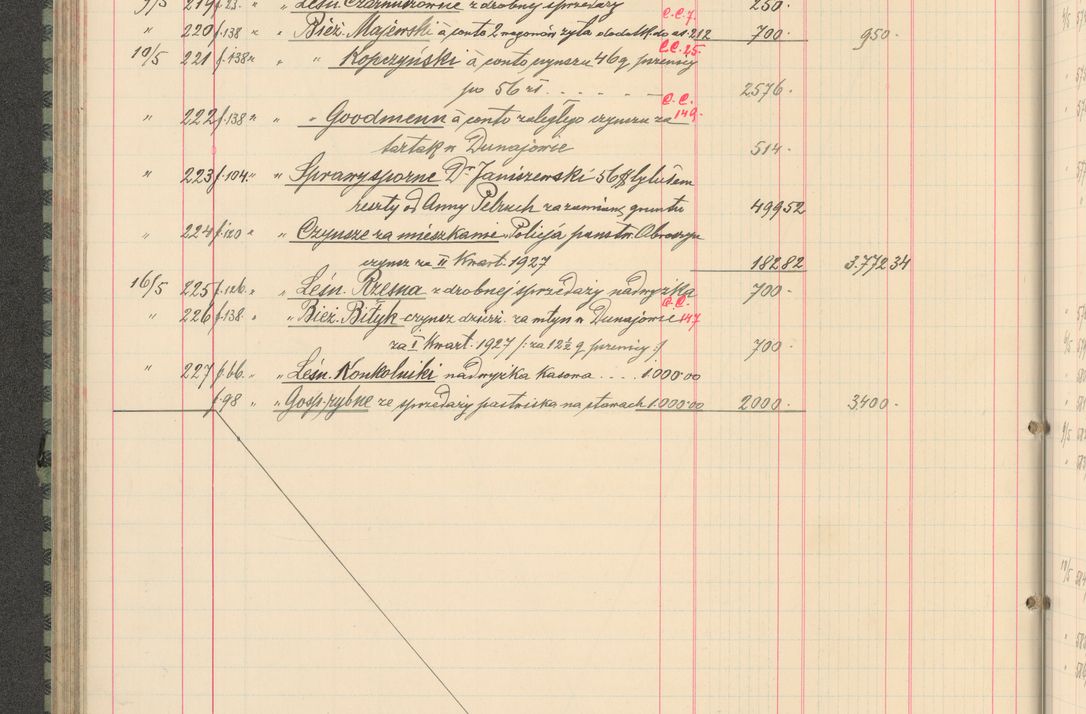 9/5 219 f. 23. " " Leśn. z drobnej sprzedaży 250.
C.C.7.
" 220 f. 138 " Bież. Majewski à conto 2 wagonów żyta dodatk. do as. 212 700. 950.
C.C. 25.
10/5 221 f. 138 " " " Kopczyński à conto czynszu 46 q. pszenicy
po 56 zł. . . . . . 2576.
C.C. 149.
" 222 f. 138 " " Goodmenn à conto zaległego czynszu za
tartak w Dunajowie 514.
" 223 f. 104. " " Sprawy sporne Dr Janiszewski tytułem
reszty od Anny za zamianę gruntu 499 52
" 224 f. 120 " " Czynsze za mieszkanie Policja państw.
czynsz za II Kwart. 1927 182 82 3.772 34
16/5 225 f. 126. " " Leśn. Rzesna z drobnej sprzedaży nadwyżka 700.
C.C. 147
" 226 f. 138. " Bież. Bityk czynsz dzierż. za młyn w Dunajowie
za I Kwart. 1927 /: za 12½ q. pszenicy :/ 700.
" 227 f. 66. " Leśn. Konkolniki nadwyżka kasowa . . . . 1.000.00
f. 98 " " Gosp. rybne ze sprzedaży pastwiska na stawach 1.000.00 2000. 3.400.